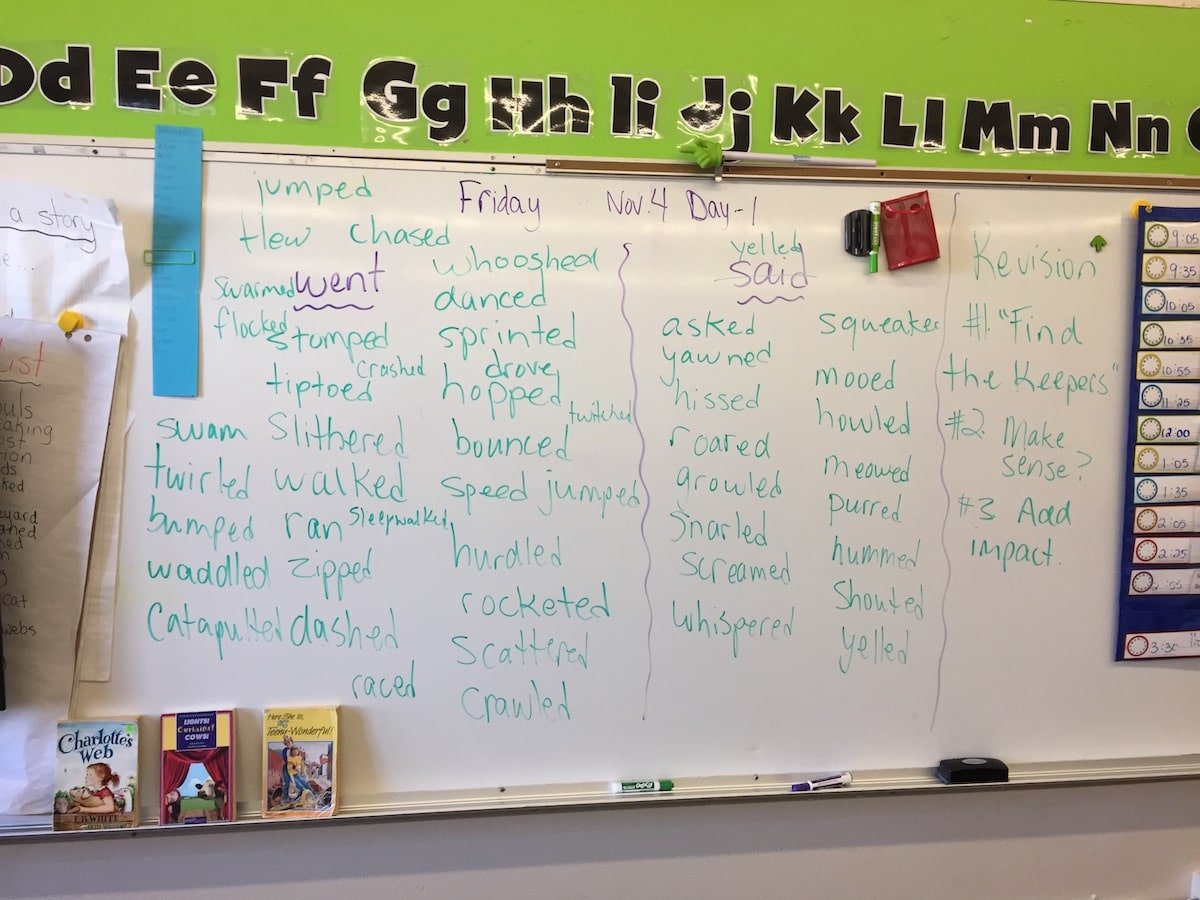 Dd Ee Ff Gg Hh Ii Jj Kk Ll Mm Nn
a story
List
Friday Nov. 4 Day-1
jumped
flew chased
swarmed went
flocked stomped
crashed
tiptoed
swam slithered
twirled walked
bumped ran sleepwalked
waddled zipped
Catapulted dashed
raced
whooshed
danced
sprinted
drove
hopped
twitched
bounced
speed jumped
hurdled
rocketed
scattered
crawled
yelled
said
asked
yawned
hissed
roared
growled
snarled
screamed
whispered
squeaked
mooed
howled
meowed
purred
hummed
shouted
yelled
Revision
#1. "Find
the Keepers"
#2. Make
sense?
#3 Add
impact.
9:05
9:35
10:05
10:35
10:55
11:25
12:00
1:05
1:35
2:05
2:25
3:30
cat
webs
Charlotte's
Web
E.B. WHITE
LIGHTS!
Curtains!
COWS!
Teeny-Wonderful!